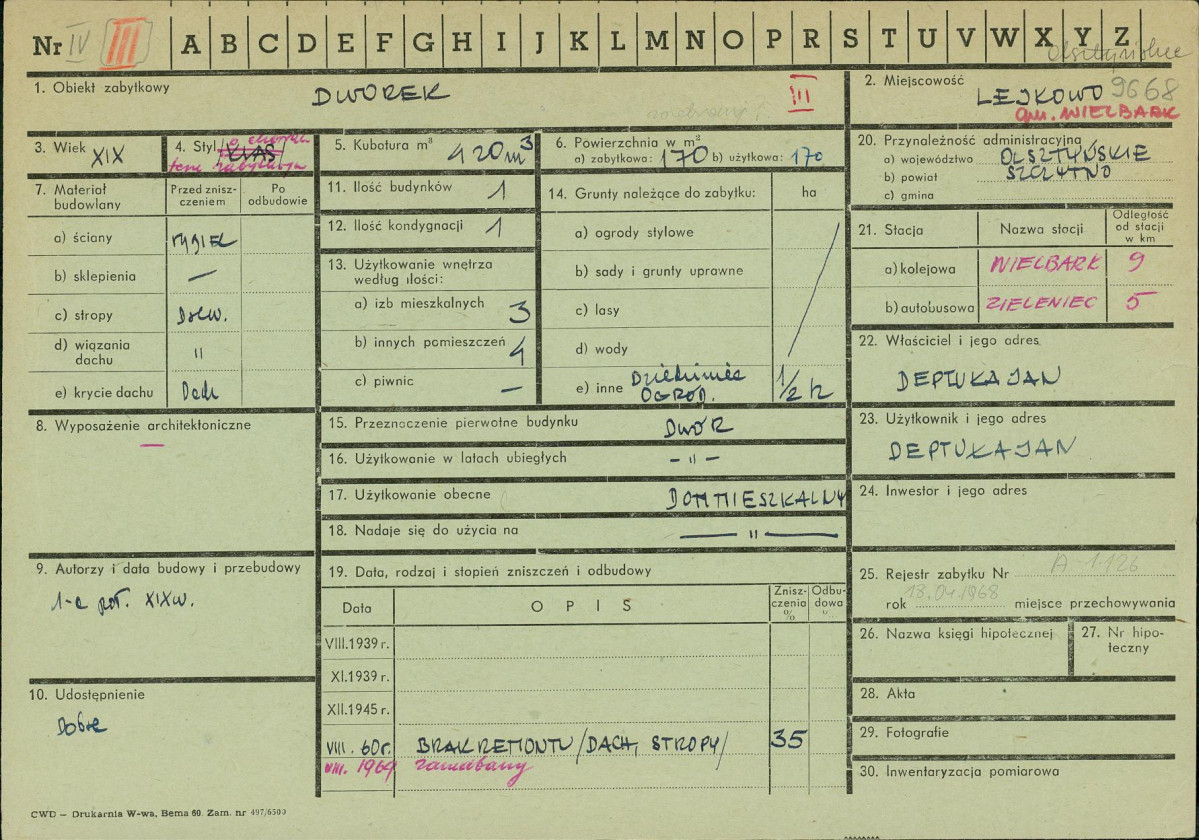 Nr IV III A B C D E F G H I J K L M N O P R S T U V W X Y Z
Olsztyńskie
1. Obiekt zabytkowy
DWOREK
III
2. Miejscowość
LEJKOWO 9668
gm. WIELBARK
3. Wiek XIX
4. Styl KLAS
o charakterze zabytkowym
5. Kubatura m³ 420 m³
6. Powierzchnia w m²
a) zabytkowa: 170 b) użytkowa: 170
20. Przynależność administracyjna
a) województwo OLSZTYŃSKIE
b) powiat SZCZYTNO
c) gmina
7. Materiał budowlany
Przed zniszczeniem
Po odbudowie
a) ściany RYGIEL
b) sklepienia —
c) stropy Drew.
d) wiązania dachu "
e) krycie dachu Dach
11. Ilość budynków 1
12. Ilość kondygnacji 1
13. Użytkowanie wnętrza według ilości:
a) izb mieszkalnych 3
b) innych pomieszczeń 4
c) piwnic —
14. Grunty należące do zabytku: ha
a) ogrody stylowe
b) sady i grunty uprawne
c) lasy
d) wody
e) inne Dziedziniec OGRÓD. 1/2 h
21. Stacja
Nazwa stacji
Odległość od stacji w km
a) kolejowa WIELBARK 9
b) autobusowa ZIELENIEC 5
22. Właściciel i jego adres
DEPTUŁA JAN
8. Wyposażenie architektoniczne
—
15. Przeznaczenie pierwotne budynku DWÓR
16. Użytkowanie w latach ubiegłych – " –
17. Użytkowanie obecne DOM MIESZKALNY
18. Nadaje się do użycia na — " —
23. Użytkownik i jego adres
DEPTUŁA JAN
24. Inwestor i jego adres
9. Autorzy i data budowy i przebudowy
1-a poł. XIX w.
19. Data, rodzaj i stopień zniszczeń i odbudowy
Data
O P I S
Zniszczenia %
Odbudowa %
VIII.1939 r.
XI.1939 r.
XII.1945 r.
VIII. 60 r. BRAK REMONTU /DACH, STROPY/ 35
VIII. 1969 zaniedbany
25. Rejestr zabytku Nr A-1126
rok 18.04.1968 miejsce przechowywania
26. Nazwa księgi hipotecznej
27. Nr hipoteczny
28. Akta
29. Fotografie
30. Inwentaryzacja pomiarowa
10. Udostępnienie
Dobre
CWD — Drukarnia W-wa, Bema 60. Zam. nr 497/6500